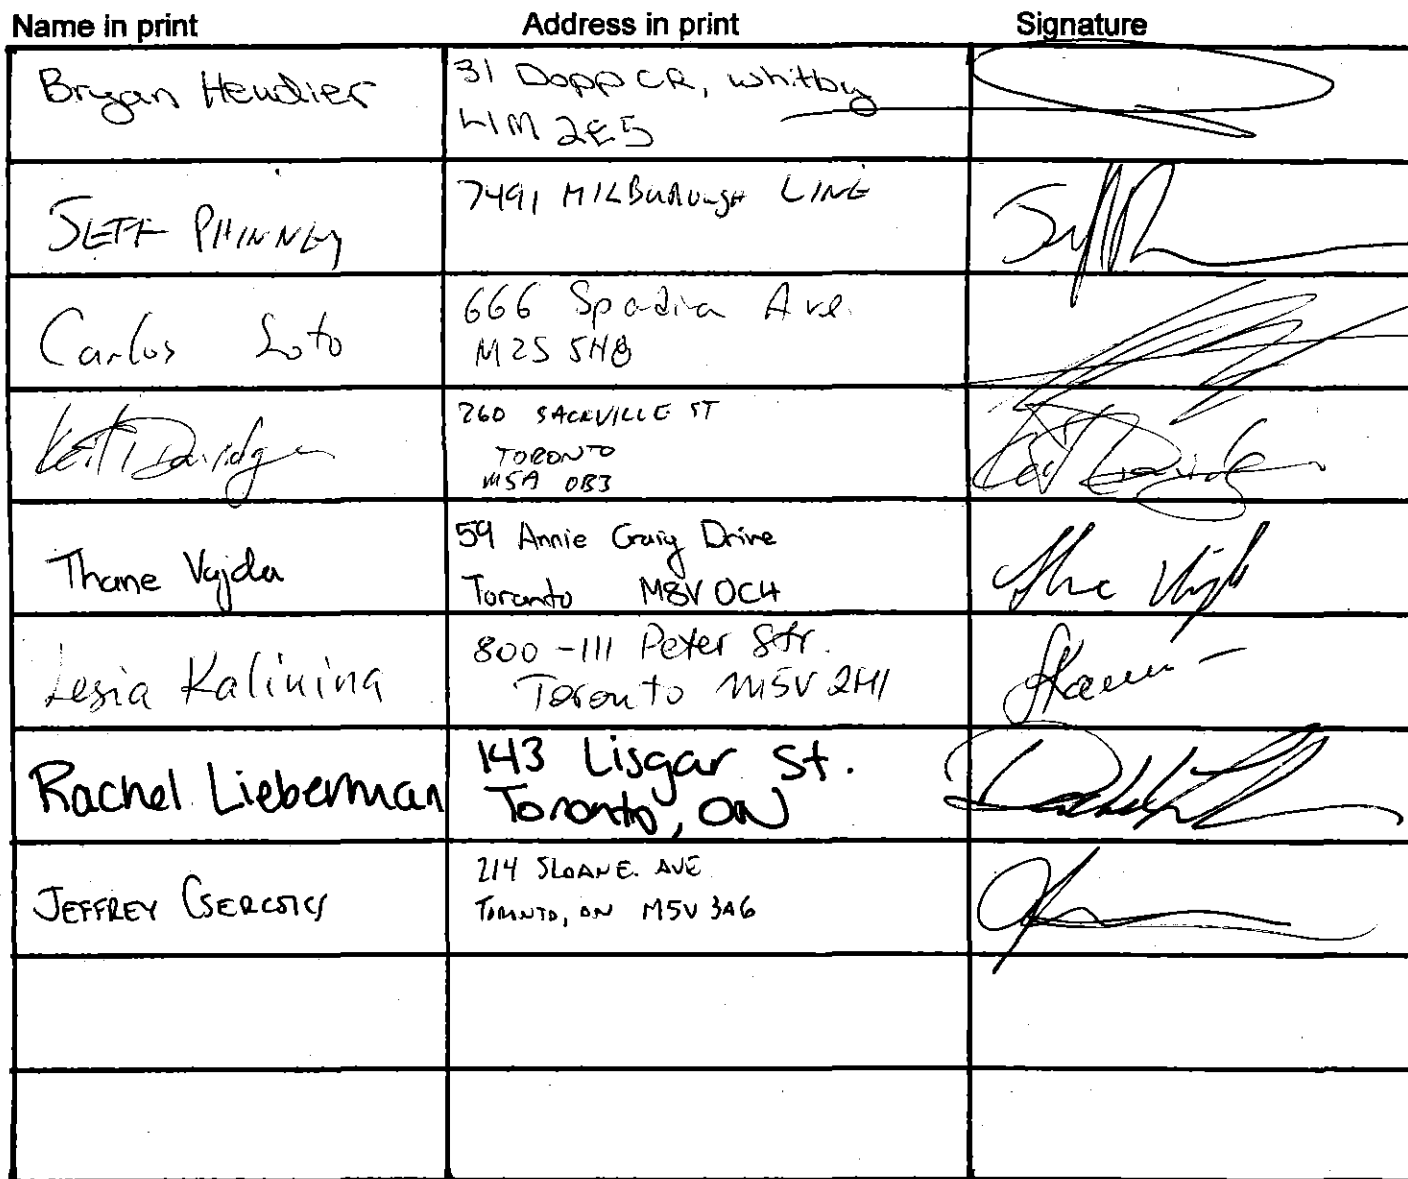 Name in print Address in print Signature
Bryan Hendier 31 Dopp CR, Whitby
L1M 2E5
JEFF PHINNEY 7491 MILBUROUGH LINE
Carlos Soto 666 Spadina Ave.
M2S 5H8
260 SACKVILLE ST
TORONTO
M5A 0B3
Thane Vajda 59 Annie Craig Drive
Toronto M8V 0C4
Lesia Kalinina 800-111 Peter Str.
Toronto M5V 2H1
Rachel Lieberman 143 Lisgar St.
Toronto, ON
JEFFREY 214 SLOANE AVE
TORONTO, ON M5V 3A6